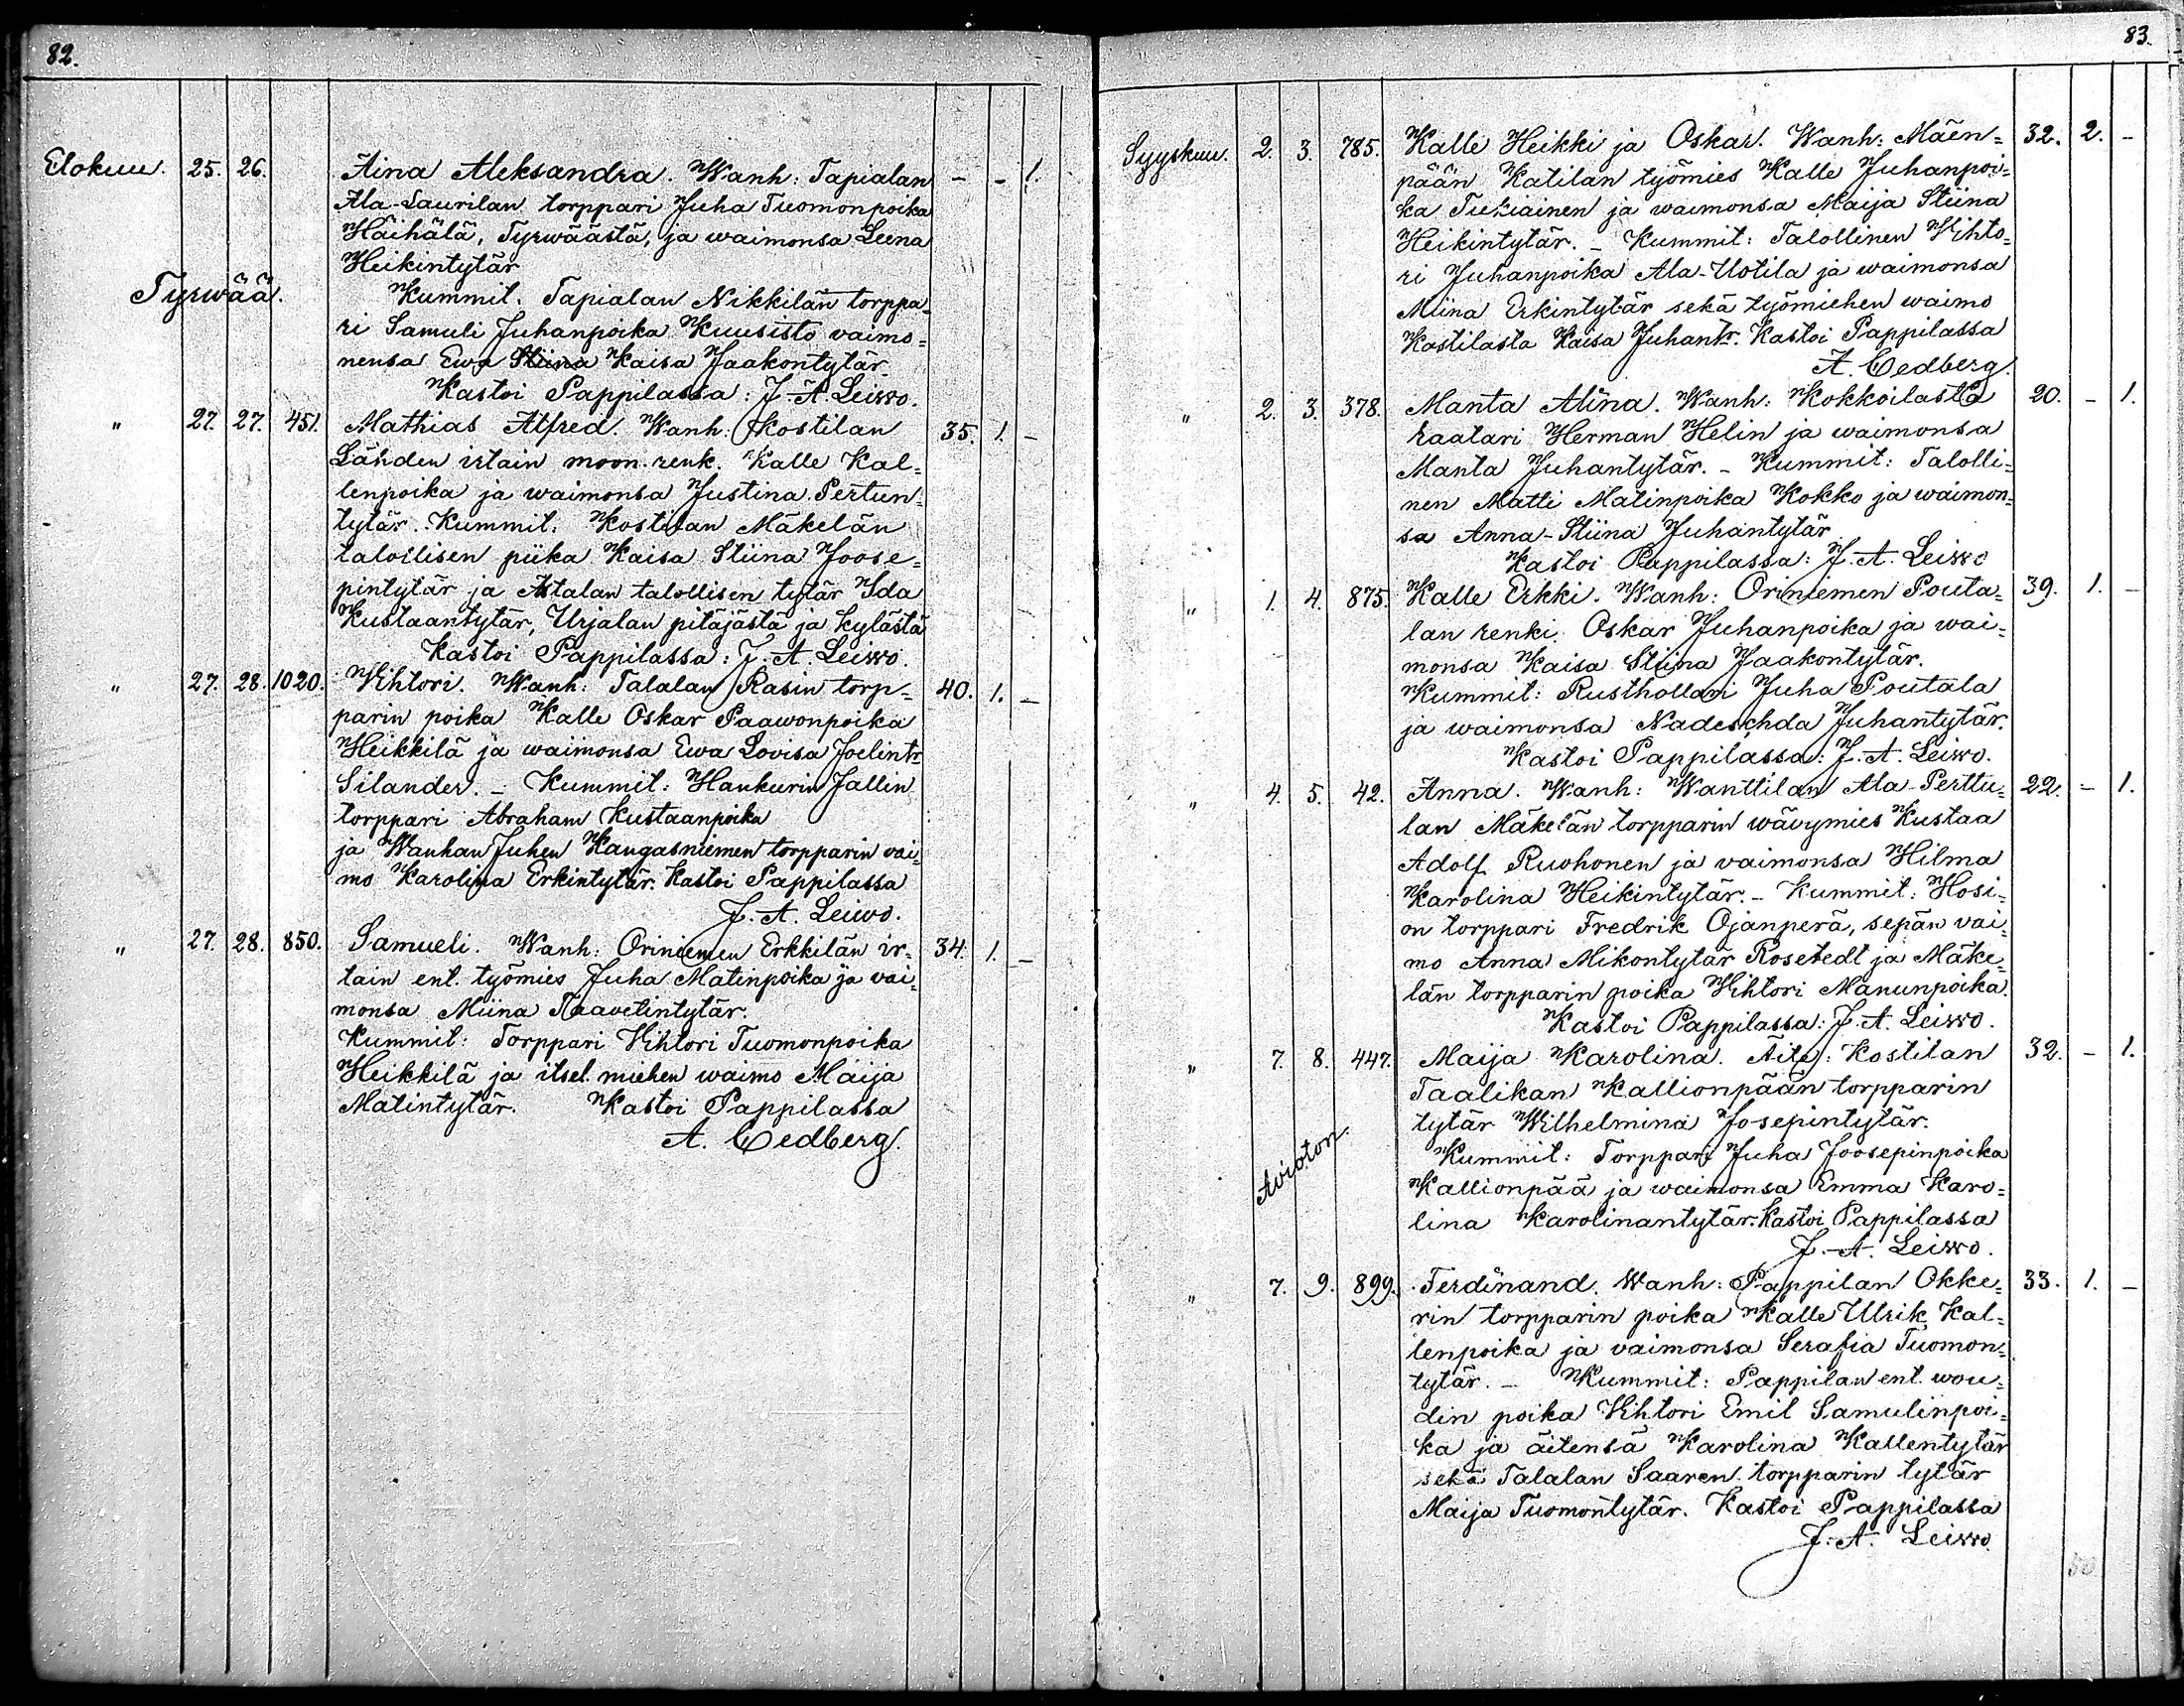 82.
Elokuu. 25. 26. Aina Aleksandra. Wanh: Tapialan - - 1.
Ala-Laurilan torppari Juha Tuomonpoika
Häihälä, Tyrwäästä, ja waimonsa Leena
Heikintytär
Tyrwää.
Kummit: Tapialan Nikkilän torppa-
ri Samuli Juhanpoika Kuusisto vaimo=
nensa Ewa Stiina Kaisa Jaakontytär.
Kastoi Pappilassa: J. A. Leiwo.
" 27. 27. 451. Mathias Alfred. Wanh: Kostilan 35. 1. -
Lähden irtain moon. renk. Kalle Kal=
lenpoika ja waimonsa Justina Pertun=
tytär. Kummit: Kostilan Mäkelän
talollisen piika Kaisa Stiina Joose=
pintytär ja Astalan talollisen tytär Ida
Kustaantytär, Urjalan pitäjästä ja kylästä
Kastoi Pappilassa: J. A. Leiwo.
" 27. 28. 1020. Vihtori. Wanh: Talalan Rasin torp= 40. 1. -
parin poika Kalle Oskar Paawonpoika
Heikkilä ja waimonsa Ewa Lovisa Joelintr
Silander. - Kummit: Hankurin Jallin
torppari Abraham Kustaanpoika
ja Wanhan Juhen Kangasniemen torpparin vai=
mo Karolina Erkintytär. Kastoi Pappilassa
J. A. Leiwo.
" 27. 28. 850. Samueli. Wanh: Oriniemen Erkkilän ir= 34. 1. -
tain ent. työmies Juha Matinpoika ja vai=
monsa Miina Taavetintytär.
Kummit: Torppari Vihtori Tuomonpoika
Heikkilä ja itsel. miehen waimo Maija
Matintytär. Kastoi Pappilassa
A. Cedberg.
83.
Syyskuu. 2. 3. 785. Kalle Heikki ja Oskar. Wanh: Mäen= 32. 2. -
pään Katilan työmies Kalle Juhanpoi=
ka Tukiainen ja waimonsa Maija Stiina
Heikintytär. - Kummit: Talollinen Vihto=
ri Juhanpoika Ala-Uotila ja waimonsa
Miina Erkintytär sekä työmiehen waimo
Kostilasta Kaisa Juhantr. Kastoi Pappilassa
A. Cedberg.
" 2. 3. 378. Manta Alina. Wanh: Kokkoilasta 20. - 1.
raatari Herman Helin ja waimonsa
Manta Juhantytär. - Kummit: Talolli=
nen Matti Matinpoika Kokko ja waimon=
sa Anna-Stiina Juhantytär
Kastoi Pappilassa: J. A. Leiwo
" 1. 4. 875. Kalle Erkki. Wanh: Oriniemen Pouta= 39. 1. -
lan renki Oskar Juhanpoika ja wai=
monsa Kaisa Stiina Jaakontytär.
Kummit: Rusthollari Juha Poutala
ja waimonsa Nadeschda Juhantytär.
Kastoi Pappilassa: J. A. Leiwo.
" 4. 5. 42. Anna. Wanh: Wanttilan Ala-Perttu= 22. - 1.
lan Mäkelän torpparin wävymies Kustaa
Adolf Ruohonen ja vaimonsa Hilma
Karolina Heikintytär. - Kummit: Hosi=
on torppari Fredrik Ojanperä, sepän vai=
mo Anna Mikontytär Rosetedt ja Mäke=
län torpparin poika Vihtori Manunpoika.
Kastoi Pappilassa: J. A. Leiwo.
" 7. 8. 447. Maija Karolina. Äiti: Kostilan 32. - 1.
Taalikan Kallionpään torpparin
tytär Wilhelmina Josepintytär.
Avioton.
Kummit: Torppari Juha Joosepinpoika
Kallionpää ja waimonsa Emma Karo=
lina Karolinantytär. Kastoi Pappilassa
J. A. Leiwo.
" 7. 9. 899. Ferdinand. Wanh: Pappilan Okke= 33. 1. -
rin torpparin poika Kalle Ulrik Kal=
lenpoika ja vaimonsa Serafia Tuomon=
tytär. - Kummit: Pappilan ent. wou=
din poika Vihtori Emil Samulinpoi=
ka ja äitensä Karolina Kallentytär
sekä Talalan Saaren torpparin tytär
Maija Tuomontytär. Kastoi Pappilassa
J. A. Leiwo.
50